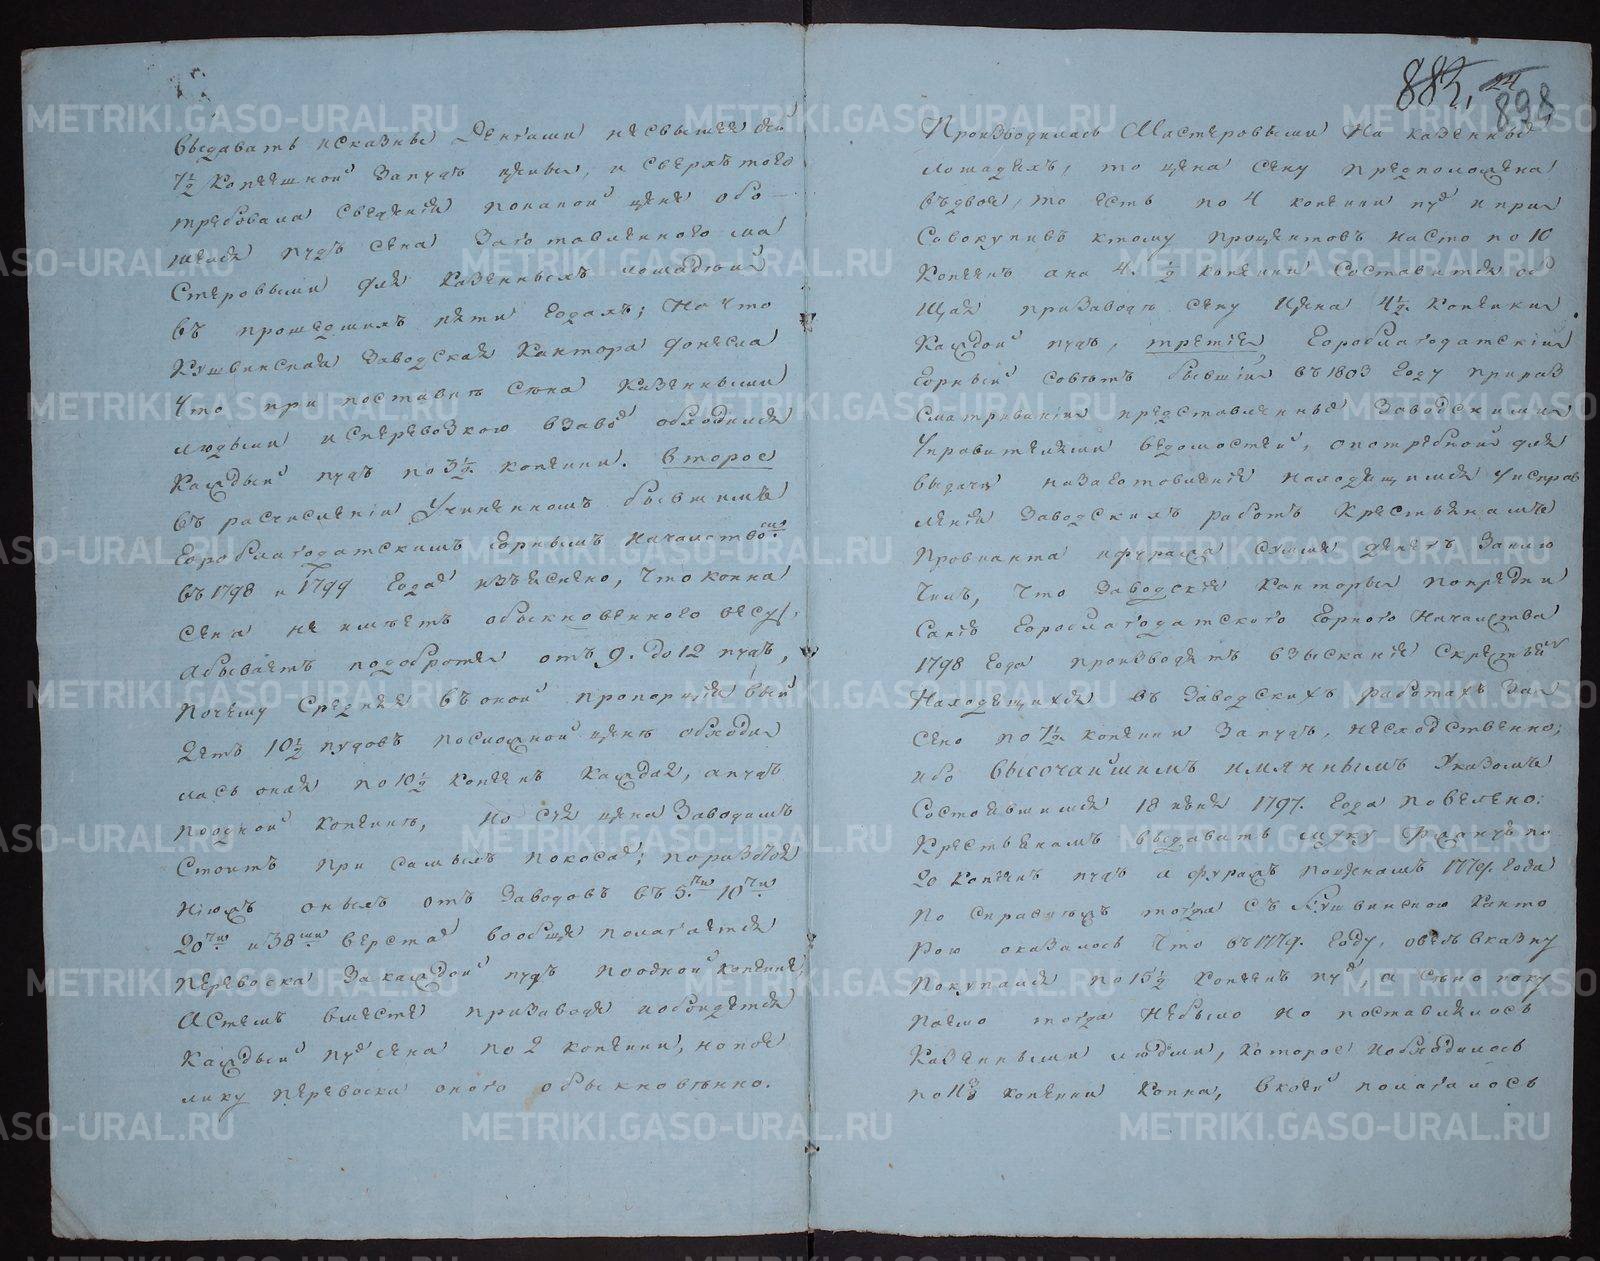 выдавать исказны деньгами несвыше
7½ копеешной запудъ цены, и сверхъ того
требовала сведения покакой цене обо-
шелся пудъ сена заготовленного ма
стеровыми для казенныхъ лошадей
въ прошедшихъ пяти годахъ; На что
Кушвинская заводская Контора донесла
что при поставке сена казенными
людьми исперевозкою взаво обходился
каждый пудъ по 3½ копейки. второе
въ расчислении учиненномъ бывшимъ
Гороблагодатскимъ Горнымъ Начальство
въ 1798 и 1799 года изъяснено, что копна
сена не имеетъ обыкновенного весу,
абываетъ подоброте отъ 9. до 12 пудъ,
почему средняя въ оной пропорция
10½ пудовъ посложной цене обходи
лась оная по 10½ копеекъ каждая, а пудъ
поодной копейке, но сия цена Заводамъ
стоитъ при самыхъ покоса; поразной
оныхъ отъ Заводовъ въ 5. 10
20 и 38 верста вообще полагается
перевоска закаждой пудъ поодной копейке,
Астемъ вместе призаводе и обойдется
Каждый пу сена по 2 копейки, но
лику перевоска оного обыкновенно.
882. 24
898
Производилась Мастеровыми на казенны
лошадяхъ, то цена сену предположена
въдвое, то есть по 4 копейки пу и при
Совокупивъ ктому процентовъ насто по 10
копеекъ ана 4. ½ копейки составится об
щая призаводе сену цена 4½ копейки
Каждой пудъ, третие Гороблагодатский
Горный советъ бывший въ 1803 году прираз
сматривании представленны Заводскими
Управителями ведомостей, опотребной для
выдачи назаготовление находящимся уисправ
ления Заводскихъ работъ Крестьянамъ
провианта ифуража сумме денегъ заклю
чилъ, что Заводские Канторы попредпи
санию Гороблагодатского Горного Начальства
1798 года производятъ взыскание скрестья
Находящихся въ Заводскихъ работахъ за
сено по 7½ копейки Запудъ, несходственно;
ибо высочайшимъ имяннымъ Указомъ
Состоявшимся 18 1797. года повелено:
Крестьянамъ выдавать муку ржаную по
20 копеекъ пудъ а фуражъ поценамъ 1779. года
По справкамъ тогда съ Кушвинскою Канто
рою оказалось что въ 1779. году, овесъ вказну
покупался по 15½ копеекъ пу, а сено поку
паемо тогда небыло но поставлялось
казенными людми, которое иобходилось
по 11 копейки копна, вкоей полагалось
METRIKI.GASO-URAL.RU